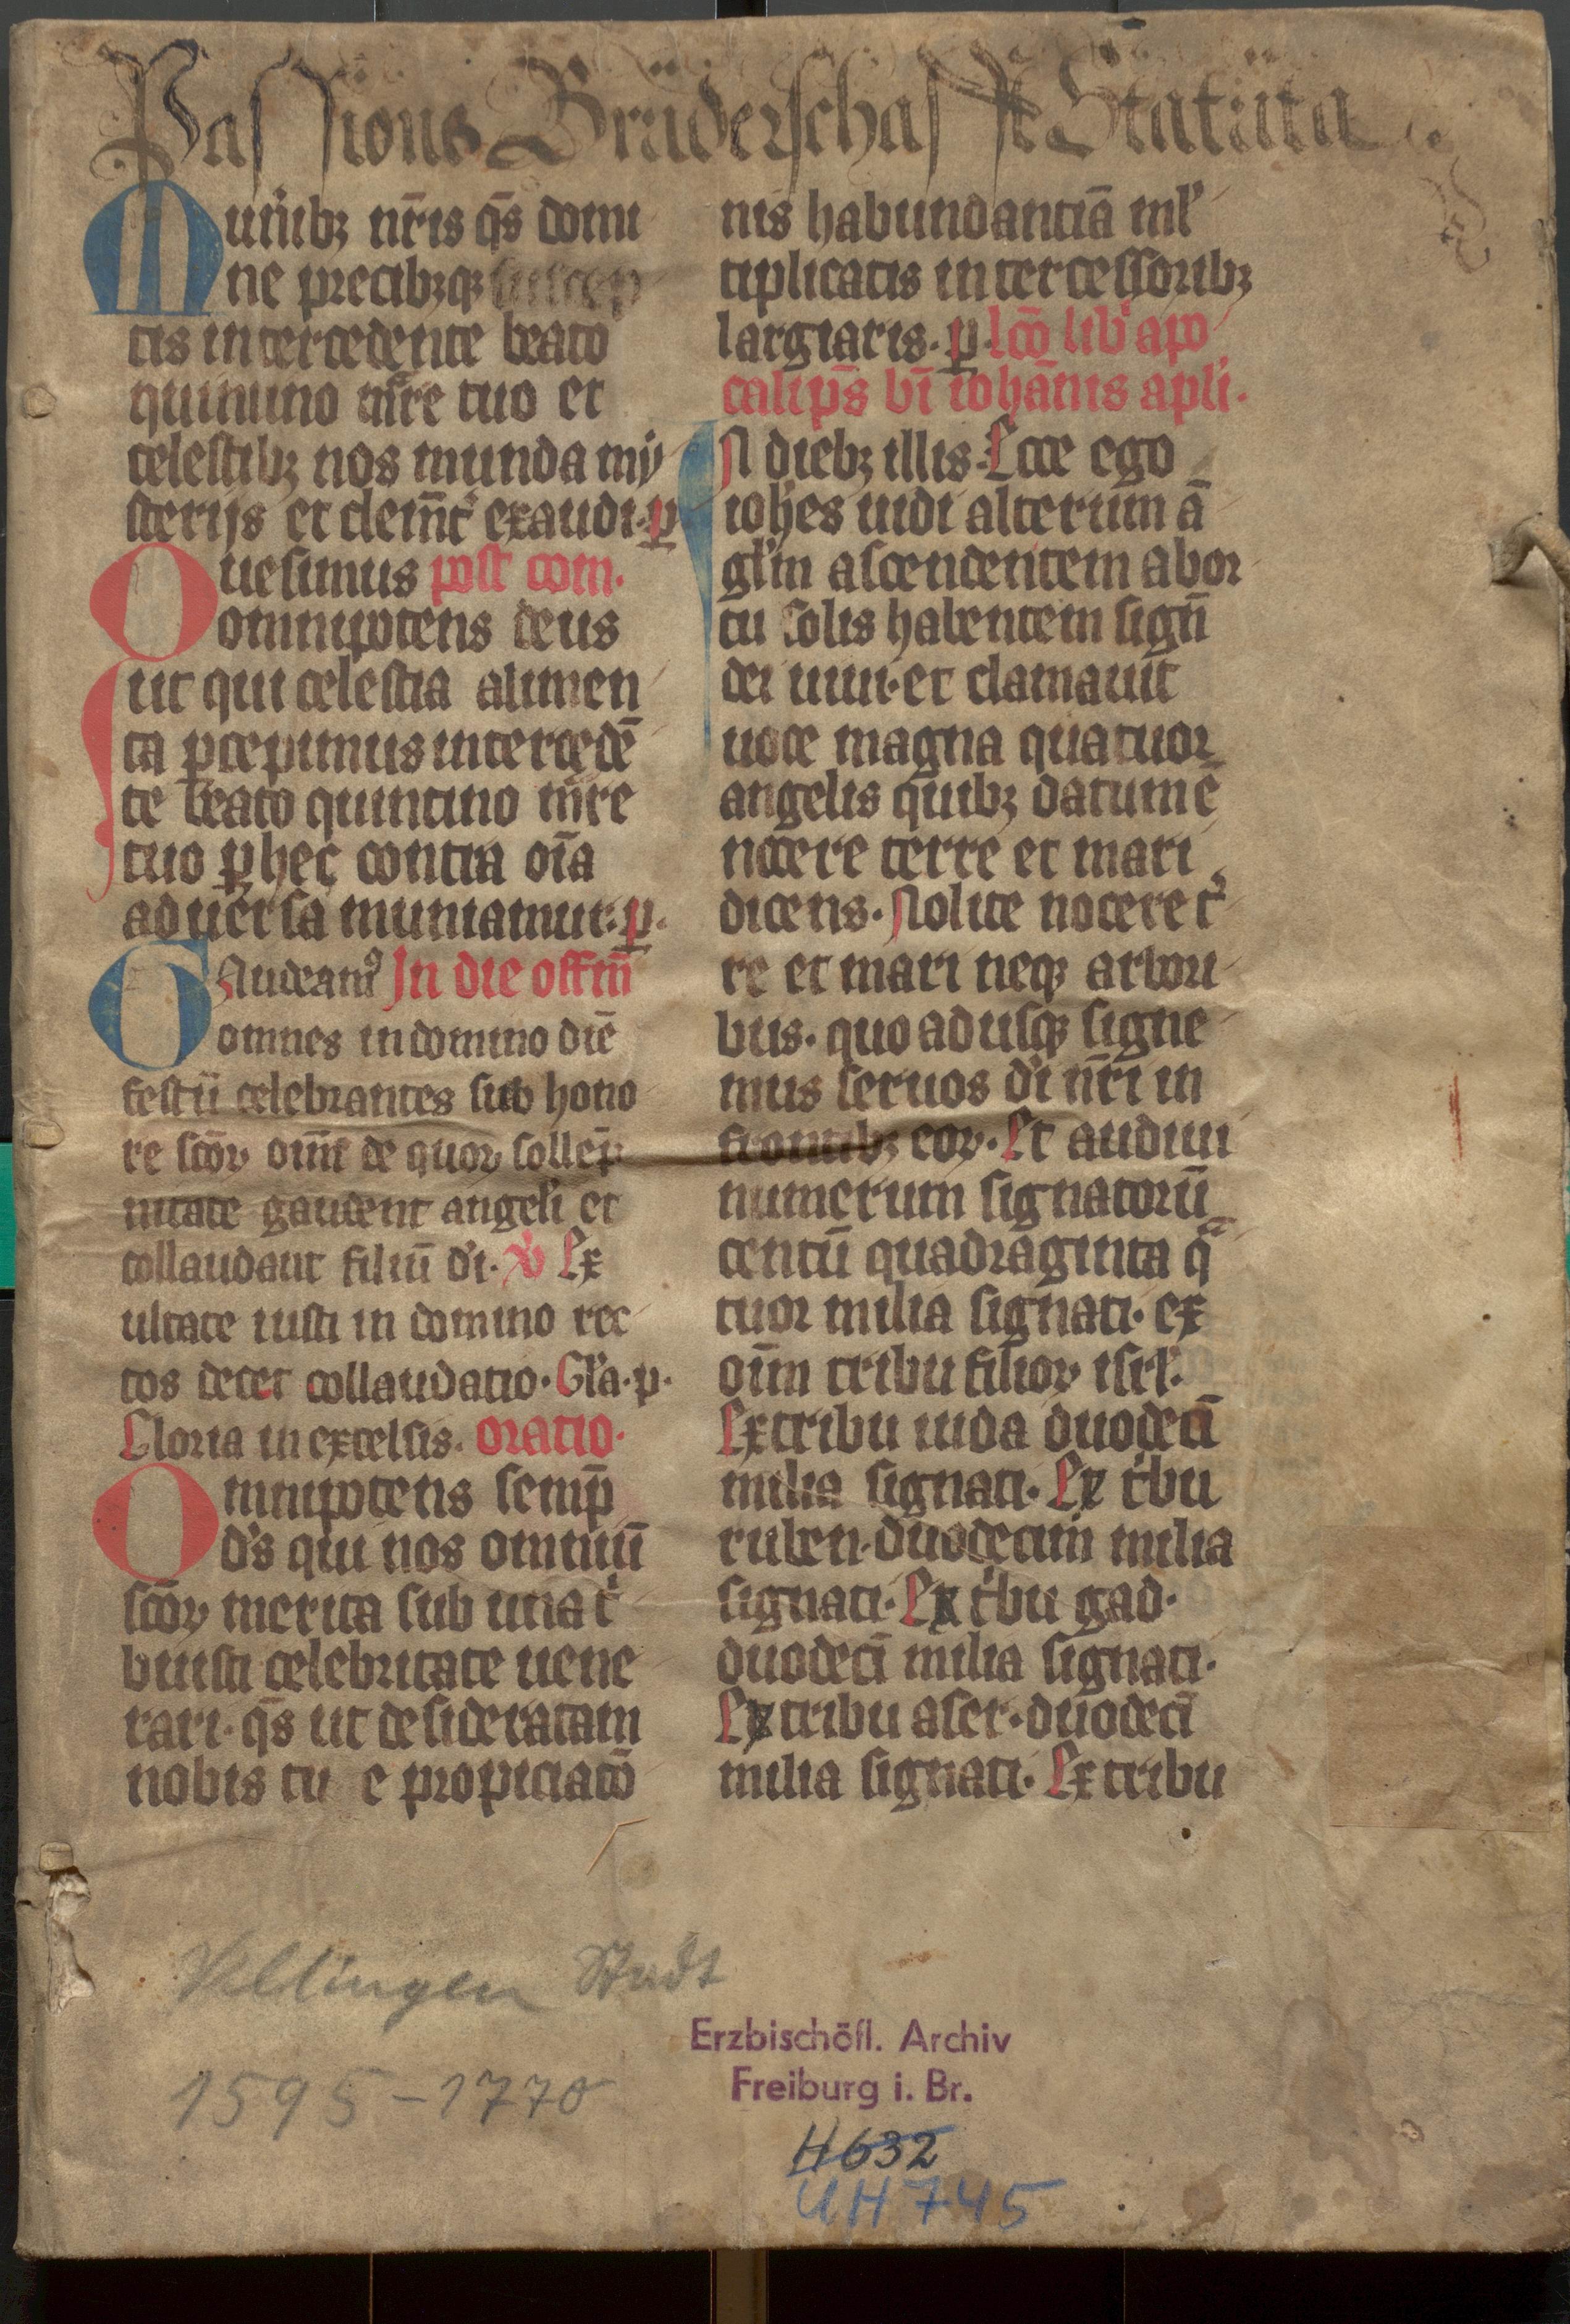 Passions Brüderschafft Statüta
Munib; nr̄is qs̄ domi
ne precib;q; suscep
tis intercedente beato
quintino mr̄e tuo et
celestib; nos munda mi
sterijs et clemēt exaudi. p
Quesumus post com.
omnipotens deus
ut qui celestia alimen
ta pcepimus intercedē
te beato quintino mr̄e
tuo p hec contra oīa
aduersa muniamur. p.
Gaudeam⁹ In die offm̄
omnes in domino diē
festū celebrantes sub hono
re scōꝝ oīm̄ de quoꝝ sollēp
nitate gaudent angeli et
collaudant filiū di. v Ex
ultate iusti in domino rec
tos decet collaudatio. Gla. p.
Gloria in excelsis. oratio.
Omnipotens semp̄
ds qui nos omniū
scōꝝ merita sub una t
buisti celebritate uene
rari. qs̄ ut desideratam
nobis tu e propiciatō
nis habundantiā ml
tiplicatis intercessorib;
largiaris. p. lcō lib apo
calips̄ bī iohānis apli.
In dieb; illis. Ecce ego
iohes uidi alterum ā
glm ascendentem ab or
tu solis habentem sign̄
dei uiui. et clamauit
uoce magna quatuor
angelis quib; datum ē
nocere terre et mari
dicens. Nolite nocere t
re et mari neq; arbori
bus. quoadusq; signe
mus seruos di nr̄i in
frontib; eoꝝ. Et audiui
numerum signatorū
centū quadraginta q
tuor milia signati. ex
oīm tribu filioꝝ isrl.
Ex tribu iuda duodecī
milia signati. Ex tbu
ruben. duodecim milia
signati. Ex tbu gad.
duodecī milia signati.
Ex tribu aser. duodecī
milia signati. Ex tribu
Villingen Stadt
1595-1770
Erzbischöfl. Archiv
Freiburg i. Br.
H 632
UH 745